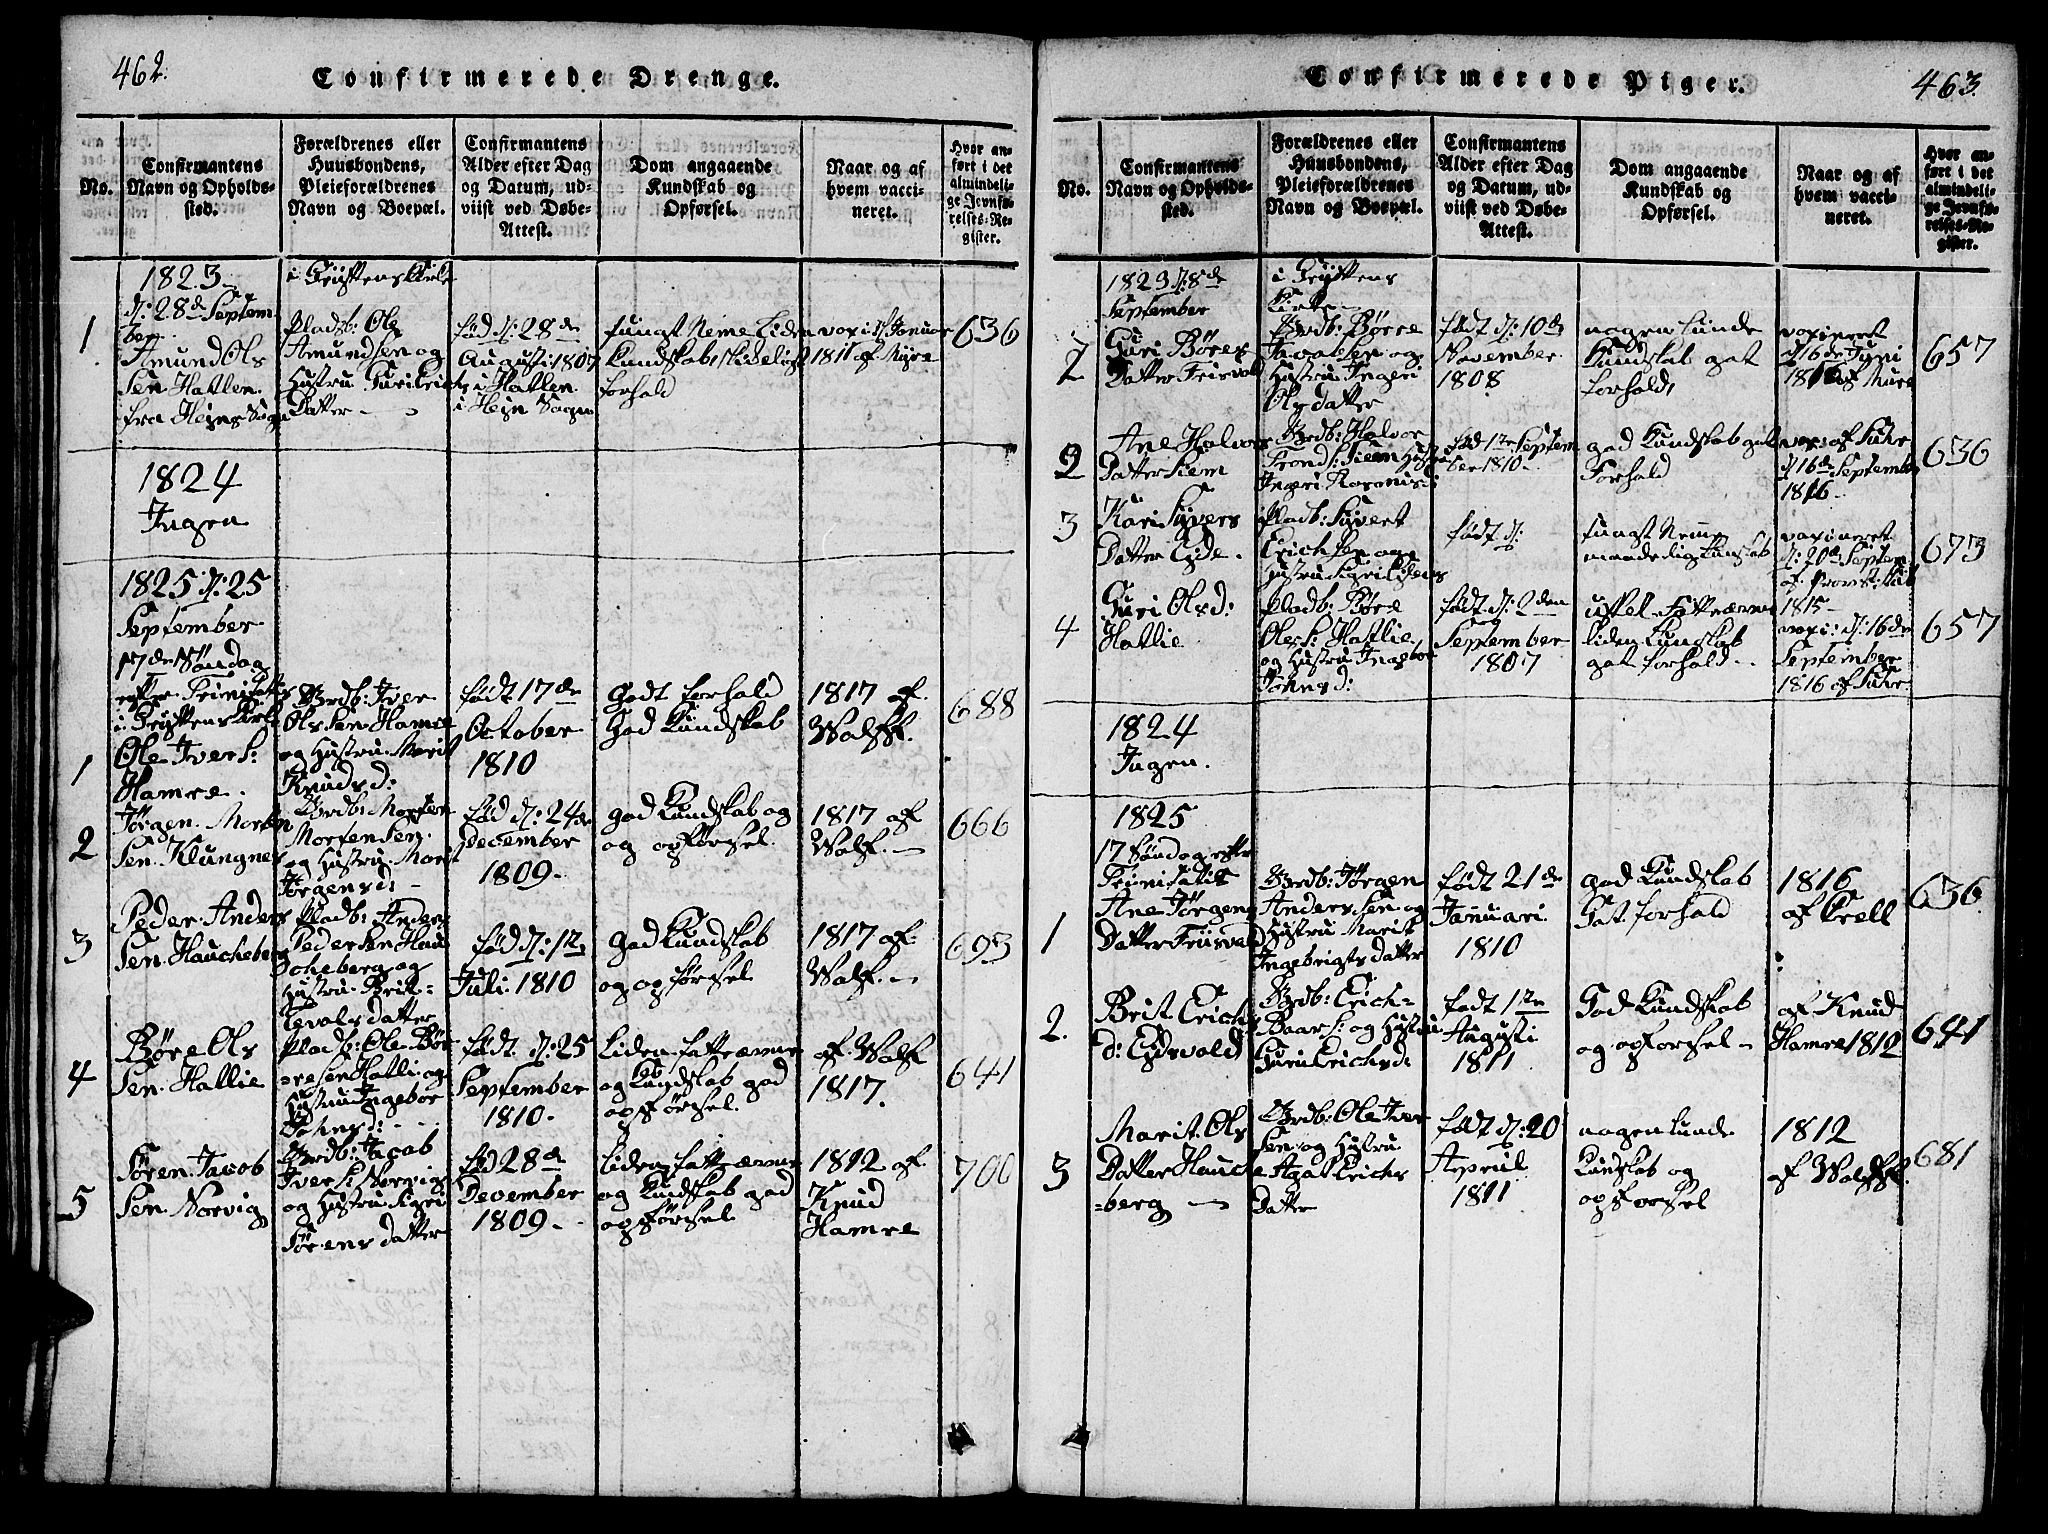 462.
Confirmerede Drenge.
No.
Confirmantens
Navn og Opholds-
sted.
Forældrenes eller
Huusbondens,
Pleieforældrenes
Navn og Boepæl.
Confirmantens
Alder efter Dag
og Datum, ud-
viist ved Døbe-
Attest.
Dom angaaende
Kundskab og
Opførsel.
Naar og af
hvem vacci-
neret.
Hvor an-
ført i det
almindeli-
ge Jevnfø-
relses-Re-
gister.
1823
d: 28de Septem
ber
i Gryttens Kirke
1
Amund Ols
Sen Hatlen.
fra Heyns Sogn
Pladsb: Ole
Amundsen og
Hustru Guri Erich
Datter
fød d: 28de
August: 1807
i Hatlen
i Heyn Sogn
tungt Neme Liden
Kundskab, skikkeligt
forhold
vaxi: d: Januar
1811 af Myre
636
1824
Ingen
1825 d: 25
September
17de Søndag
efter Trinitatis
i Gryttens Kirke
1
Ole Ivers:
Hamre.
Brdb: Iver
Ols Sen Hamre
og Hustru Marit
Knudsd:
født 17de
October
1810
Godt forhold
God Kundskab
1817 af
Walff.
688
2
Jørgen Morten
Sen Klungnes
Brdb: Morten
Mortensen
og Hustru Marit
Jørgensd:
fød d: 24de
December
1809
god Kundskab og
og opførsel.
1817 af
Walff.
666
3
Peder Anders
Sen Haucheberg
Pladb: Anders
Pedersen Hau
cheberg og
Hustru Brit
født d: 1te
Juli 1810
God Kundskab
og opførsel
1817 af
Walff.
693
4
Børe Ols
Sen Hatlie
Pladb: Ole Bør
resen Hatli og
Hustru Ingebor
Johnsd:
født d: 25
September
1810.
Liden fatteevne
og Kundskab god
opførsel.
af Walff
1817.
641
5
Søren Jacob
Sen Norvig
Brdb: Jacob
Ivers: Norvig
og Hustru Sigri
Sørensdatter
fød 28de
December
1809
Liden fatteevne
og Kundskab god
opførsel
1812 af
Knud
Hamre
700
463.
Confirmerede Piger.
No.
Confirmantens
Navn og Opholds-
sted.
Forældrenes eller
Huusbondens,
Pleieforældrenes
Navn og Boepæl.
Confirmantens
Alder efter Dag
og Datum, ud-
viist ved Døbe-
Attest.
Dom angaaende
Kundskab og
Opførsel.
Naar og af
hvem vacci-
neret.
Hvor an-
ført i det
almindeli-
ge Jevnfø-
relses-Re-
gister.
1823 d: 8de
September
i Gryttens
Kirke
1
Guri Børes
Datter Frisvold
Brdb: Børre
og
Hustru Ingeri
Olsdatter
født d: 10de
November
1808
nogenlunde
Kundskab got
forhold,
vaxineret
d 16de Juni
1816 af
657
2
Ane Halvor
Datter Siem
Brdb: Halvor
Tronds: Siem Hustru
Ingeri Rasmusd:
fød 1te Septem
ber 1810
god Kundskab got
Forhold
vax: af Suhr
d 16de September
1816
636
3
Kari Syvers
Datter Eyde.
Pladb: Syvert
Erichsen og
Hustru Sigri
født d:
tungt Nemme
maadelig Kunskab
vaxineret
d: 20de Septem
af
1815
673
4
Guri Olsd:
Hatlie
Pladb:
Oles: Hatlie,
og Hustru Ingebor
Johnsd:
født d: 2den
September
1807
ussel Fatteevne
liden Kunskab
got forhold
vaxi: d: 16de
September
1816 af Suhr
657
1824
Ingen.
1825
17 Søndag efter
Trinitatis
1
Ane Jørgens
Datter Frisvold
Brdb: Jørgen
Andersen og
Hustru Marit
Ingebrigts datter
født 21de
Januari
1810
God Kundskab
Got forhold
1816
af Krell
636
2.
Brit Erichs
d: Eydsvold
Brdb: Erich
Baars: og Hustru
Guri Erichsd:
født 1te
Augusti
1811
God Kundskab
og opførsel
af Knud
Hamre 1812
641
3
Marit Ols
Datter Hauch
berg
Brdb: Ole Iver
sen og Hustru
Agat Erichs
Datter
født d: 20
Apriil
1811
nogenlunde
Kundskab og
opførsel
1812
af Walff.
681